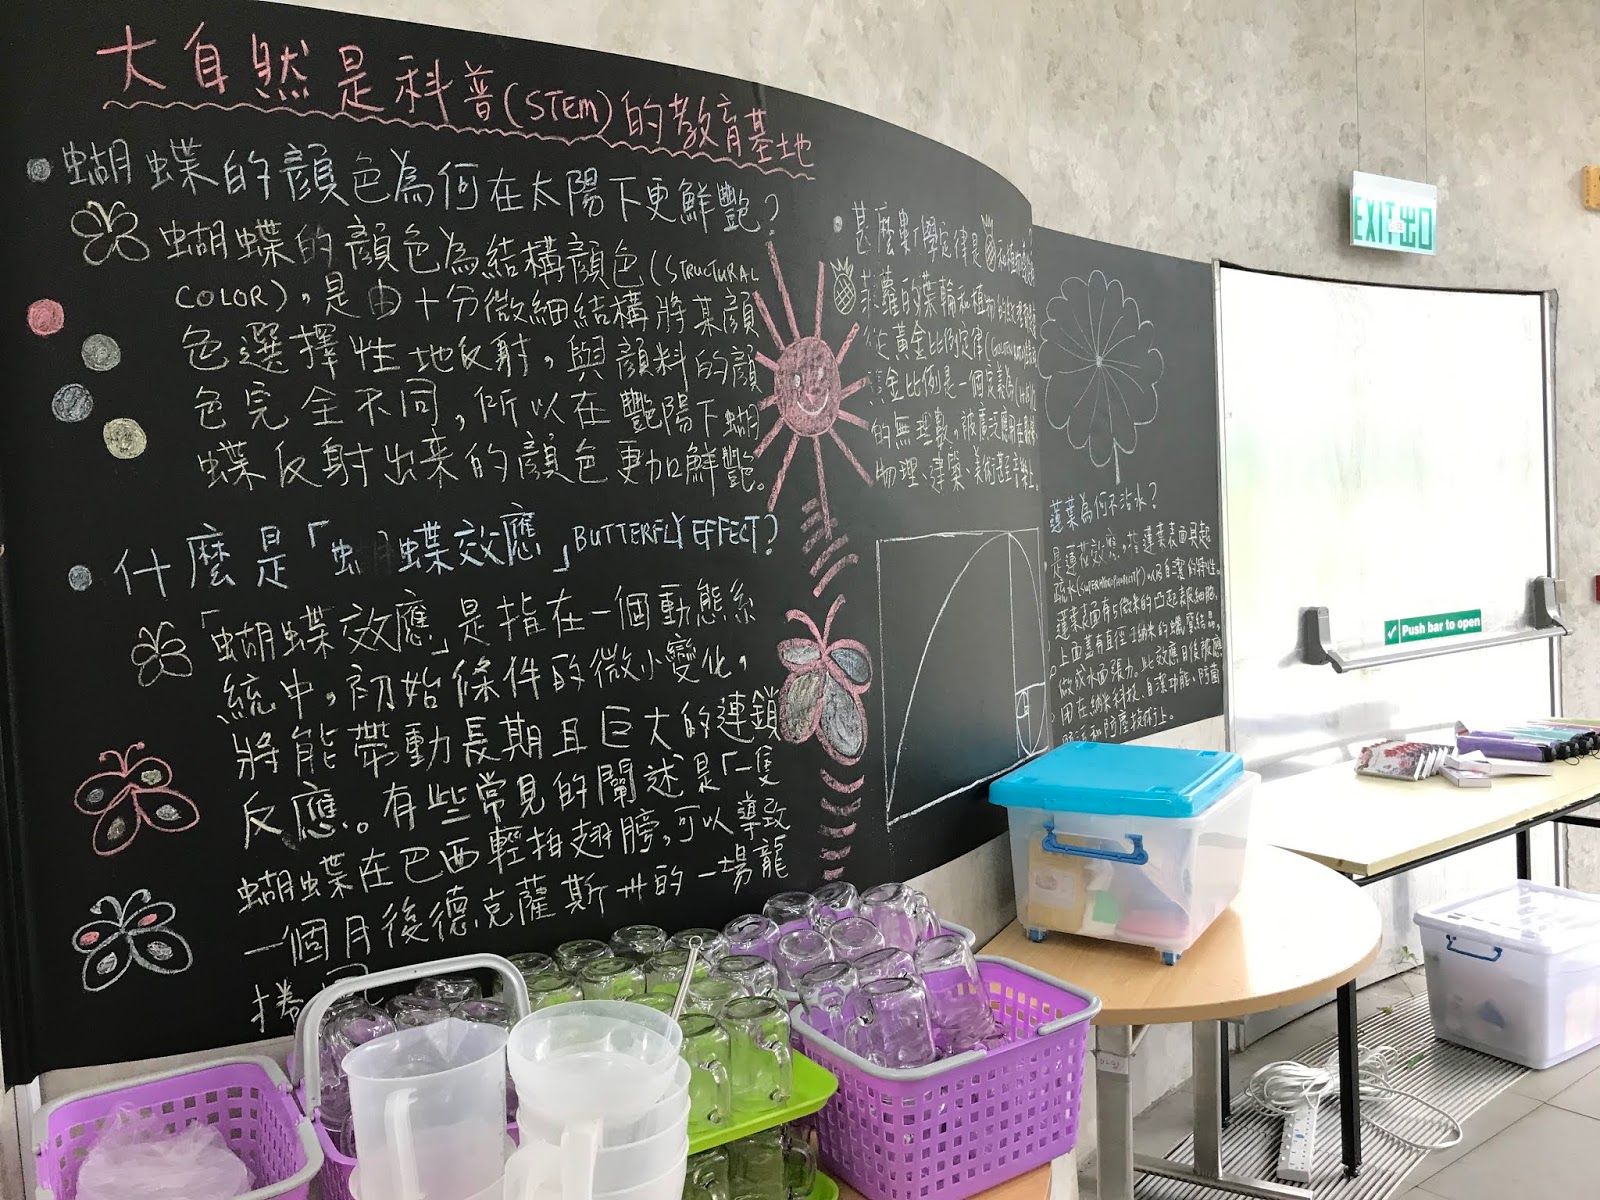 大自然是科普(STEM)的教育基地
蝴蝶的顏色為何在太陽下更鮮艷?
蝴蝶的顏色為結構顏色(STRUCTURAL
COLOR),是由十分微細結構將某顏
色選擇性地反射,與顏料的顏
色完全不同,所以在艷陽下蝴
蝶反射出來的顏色更加鮮艷。
什麼是「蝴蝶效應」BUTTERFLY EFFECT?
「蝴蝶效應」是指在一個動態系
統中,初始條件的微小變化,
將能帶動長期且巨大的連鎖
反應。有些常見的闡述是「一隻
蝴蝶在巴西輕拍翅膀,可以導致
一個月後德克薩斯州的一場龍
捲
甚麼數學定律是
菠蘿的葉輪和植物的
從黃金比例定律
黃金比例是一個定義為
的無理數,被廣泛應用在
物理、建築、美術甚至音樂上。
蓮葉為何不沾水?
是蓮花效應,指蓮葉表面具超
疏水(SUPERHYDROPHOBICITY)以及自潔的特性。
蓮葉表面有5微米的凸起表皮細胞,
上面蓋有直徑1納米的蠟質結晶,
做成水面張力。此效應日後被應
用在納米科技、自潔功能、防菌
和防塵技術上。
EXIT 出口
Push bar to open